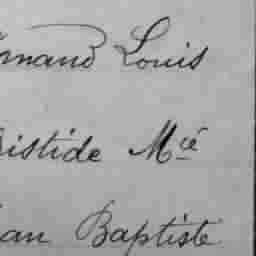 rmand Louis
ristide Mcé
ean Baptiste